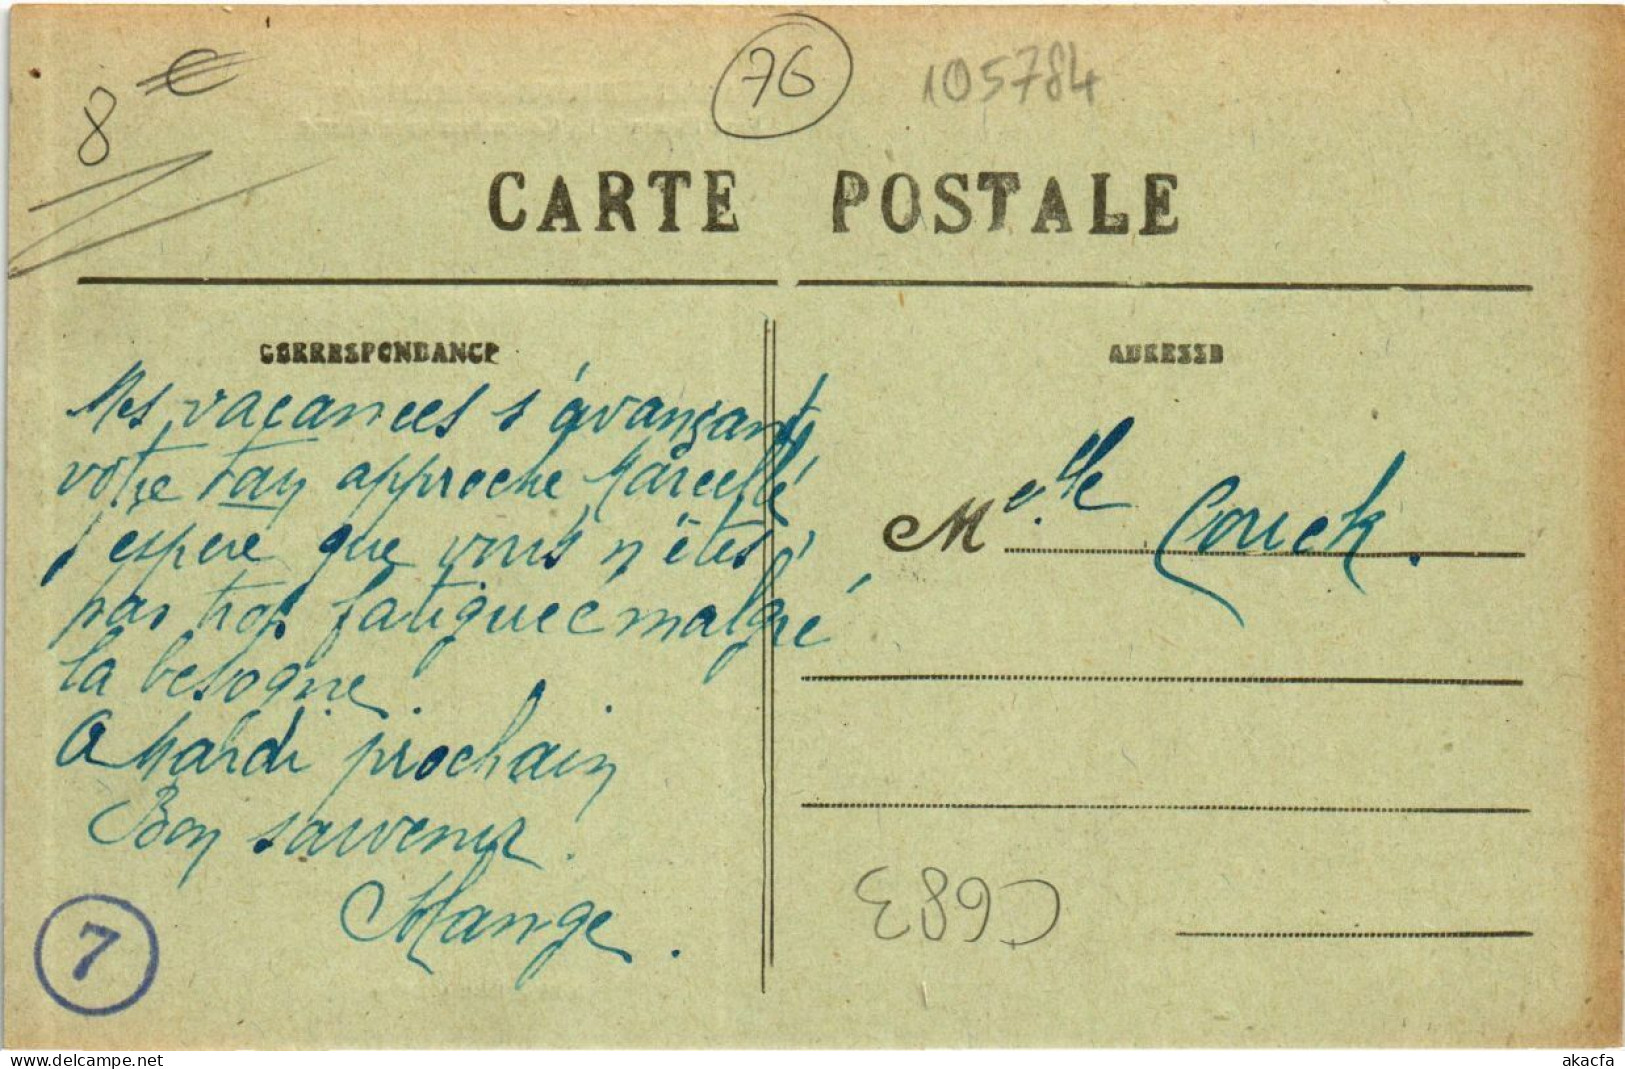 8 €
76
105784
CARTE POSTALE
CORRESPONDANCE
ADRESSE
Mes vacances s'avançant
votre tay approche Marcelle
j'espère que vous n'êtes
pas trop fatiguée malgré
la besogne.
A Mardi prochain
Bon souvenir.
M elle Couek.
7
C683
akacfa